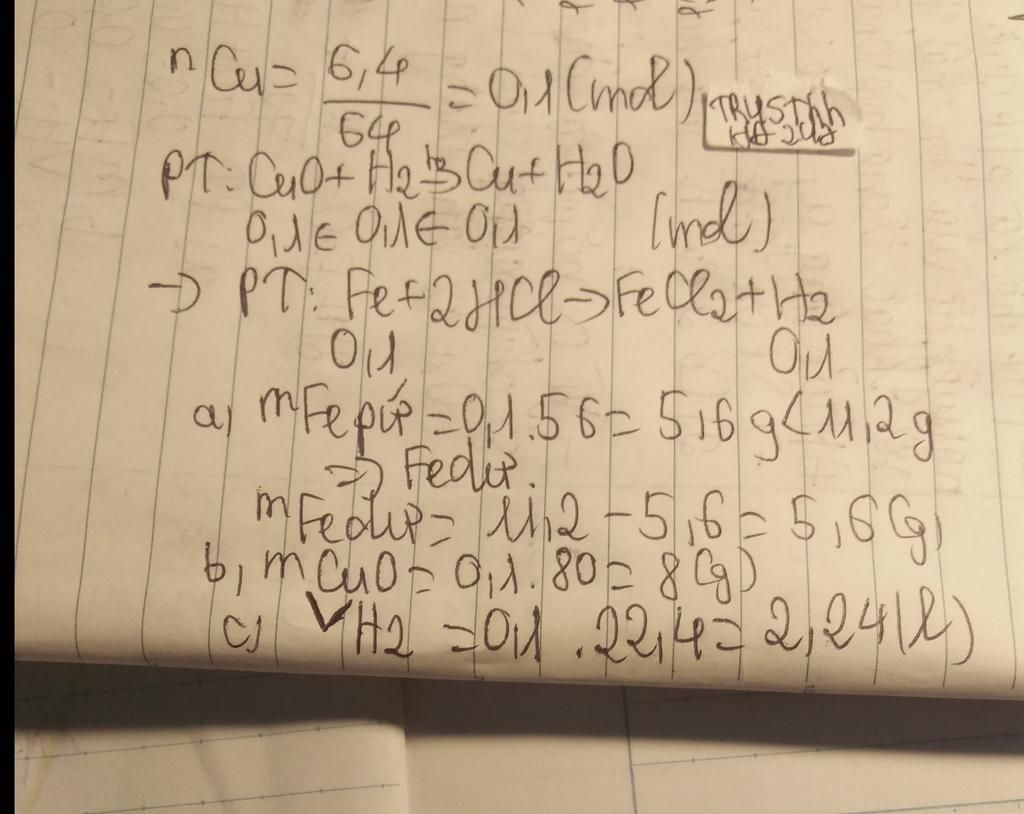 nCu = 6,4/64 = 0,1 (mol)
PT: CuO + H2 → Cu + H2O
0,1 ← 0,1 ← 0,1 (mol)
→ PT: Fe + 2HCl → FeCl2 + H2
0,1 0,1
a, mFe pứ = 0,1.56 = 5,6 g < 11,2g
=> Fe dư.
mFe dư = 11,2 - 5,6 = 5,6 (g)
b, mCuO = 0,1.80 = 8 (g)
c, VH2 = 0,1.22,4 = 2,24 (l)